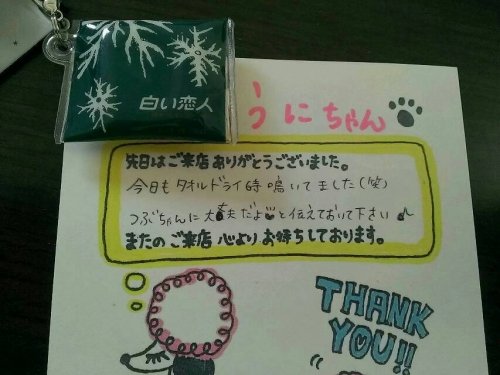 白い恋人
うにちゃん
先日はご来店ありがとうございました。
今日もタオルドライ時鳴いてました(笑)
つぶちゃんに大丈夫だよと伝えておいて下さい
またのご来店 心より お待ちしております。
THANK
YOU!!